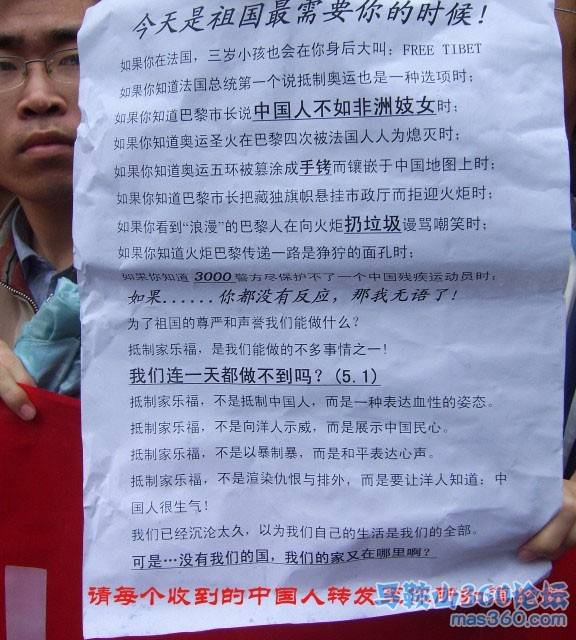 今天是祖国最需要你的时候！
如果你在法国，三岁小孩也会在你身后大叫：FREE TIBET
如果你知道法国总统第一个说抵制奥运也是一种选项时；
如果你知道巴黎市长说中国人不如非洲妓女时；
如果你知道奥运圣火在巴黎四次被法国人人为熄灭时；
如果你知道奥运五环被篡涂成手铐而镶嵌于中国地图上时；
如果你知道巴黎市长把藏独旗帜悬挂市政厅而拒迎火炬时；
如果你看到“浪漫”的巴黎人在向火炬扔垃圾谩骂嘲笑时；
如果你知道火炬巴黎传递一路是狰狞的面孔时；
如果你知道 3000 警方尽保护不了一个中国残疾运动员时；
如果......你都没有反应，那我无语了！
为了祖国的尊严和声誉我们能做什么？
抵制家乐福，是我们能做的不多事情之一！
我们连一天都做不到吗？(5.1)
抵制家乐福，不是抵制中国人，而是一种表达血性的姿态。
抵制家乐福，不是向洋人示威，而是展示中国民心。
抵制家乐福，不是以暴制暴，而是和平表达心声。
抵制家乐福，不是渲染仇恨与排外，而是要让洋人知道：中
国人很生气！
我们已经沉沦太久，以为我们自己的生活是我们的全部。
可是…没有我们的国，我们的家又在哪里啊？
请每个收到的中国人转发
马鞍山360论坛
mas360.com